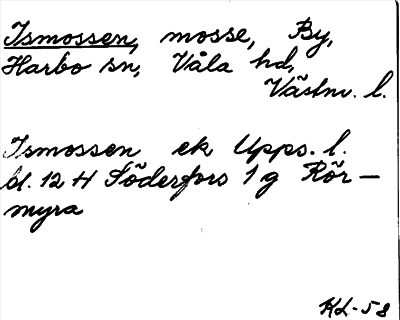 Ismossen, mosse, By,
Harbo sn, Våla hd,
Västm. l.
Ismossen ek Upps. l.
bl. 12 H Söderfors 1 g Rör-
myra
KL-58